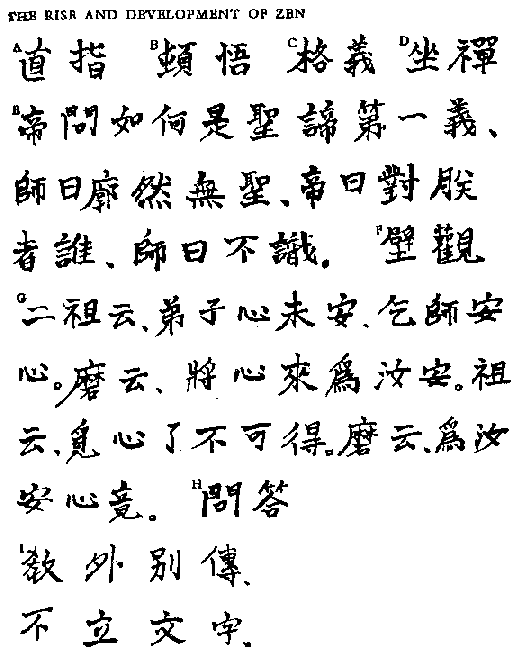 THE RISE AND DEVELOPMENT OF ZEN
A直指 B頓悟 C格義 D坐禪
E帝問如何是聖諦第一義、
師曰廓然無聖、帝曰對朕
者誰、師曰不識。 F壁觀
G二祖云、弟子心未安、乞師安
心。磨云、將心來爲汝安。祖
云、覓心了不可得。磨云、爲汝
安心竟。 H問答
I敎外別傳、
不立文字、